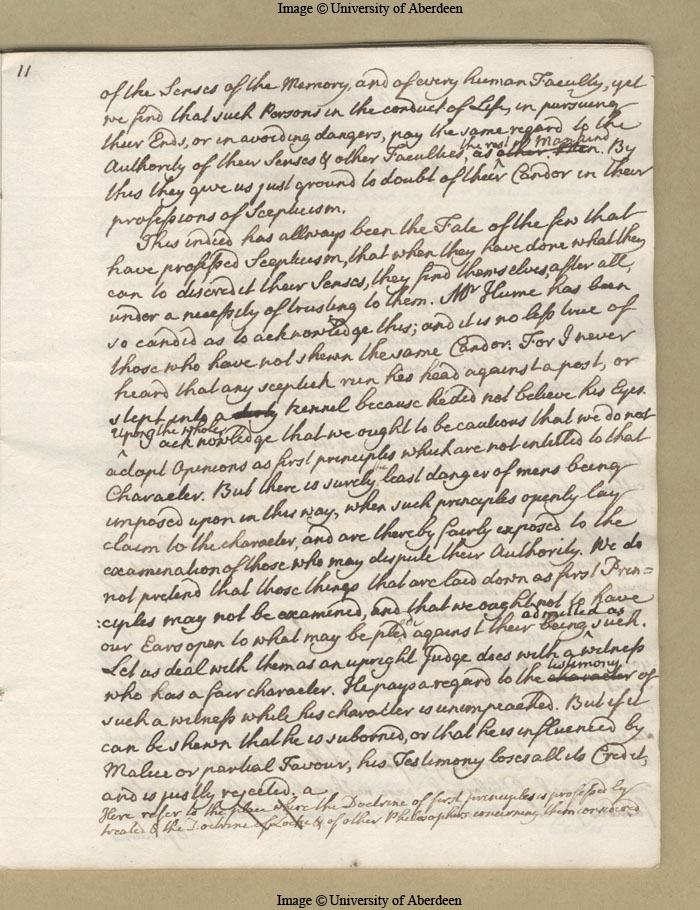 Image © University of Aberdeen
11
of the Senses of the Memory, and of every human Faculty, yet
we find that such Persons in the conduct of Life, in pursueing
their Ends, or in avoiding dangers, pay the same regard to the
the rest of Mankind
Authority of their Senses & other Faculties, as other Men. By
this they give us just ground to doubt of their Candor in their
professions of Scepticism.
This indeed has allways been the Fate of the few that
have professed Scepticism, that when they have done what they
can to discredit their Senses, they find themselves, after all,
under a necessity of trusting to them. Mr Hume has been
so candid as to acknowledge this; and it is no less true of
those who have not shewn the same Candor. For I never
heard that any sceptick run his head against a post, or
stept into a kennel because he did not believe his Eyes.
Upon the whole
I acknowledge that we ought to be cautious that we do not
adopt Opinions as first principles which are not intitled to that
Character. But there is surely the least danger of mens being
imposed upon in this way, when such principles openly lay
claim to the character, and are thereby fairly exposed to the
examination of those who may dispute their Authority. We do
not pretend that those things that are laid down as first Prin=
:ciples may not be examined, and that we ought not to have
admitted as
our Ears open to what may be pled against their being such.
Let us deal with them as an upright Judge does with a witness
testimony
who has a fair character. He pays a regard to the character of
such a witness while his character is unimpeached. But if it
can be shewn that he is suborned, or that he is influenced by
Malice or partial Favour, his Testimony loses all its Credit,
and is justly rejected. a
Here refer to the place where the Doctrine of first principles is professedly
treated & the Doctrine of Locke & of other Philosophers concerning them considered
Image © University of Aberdeen